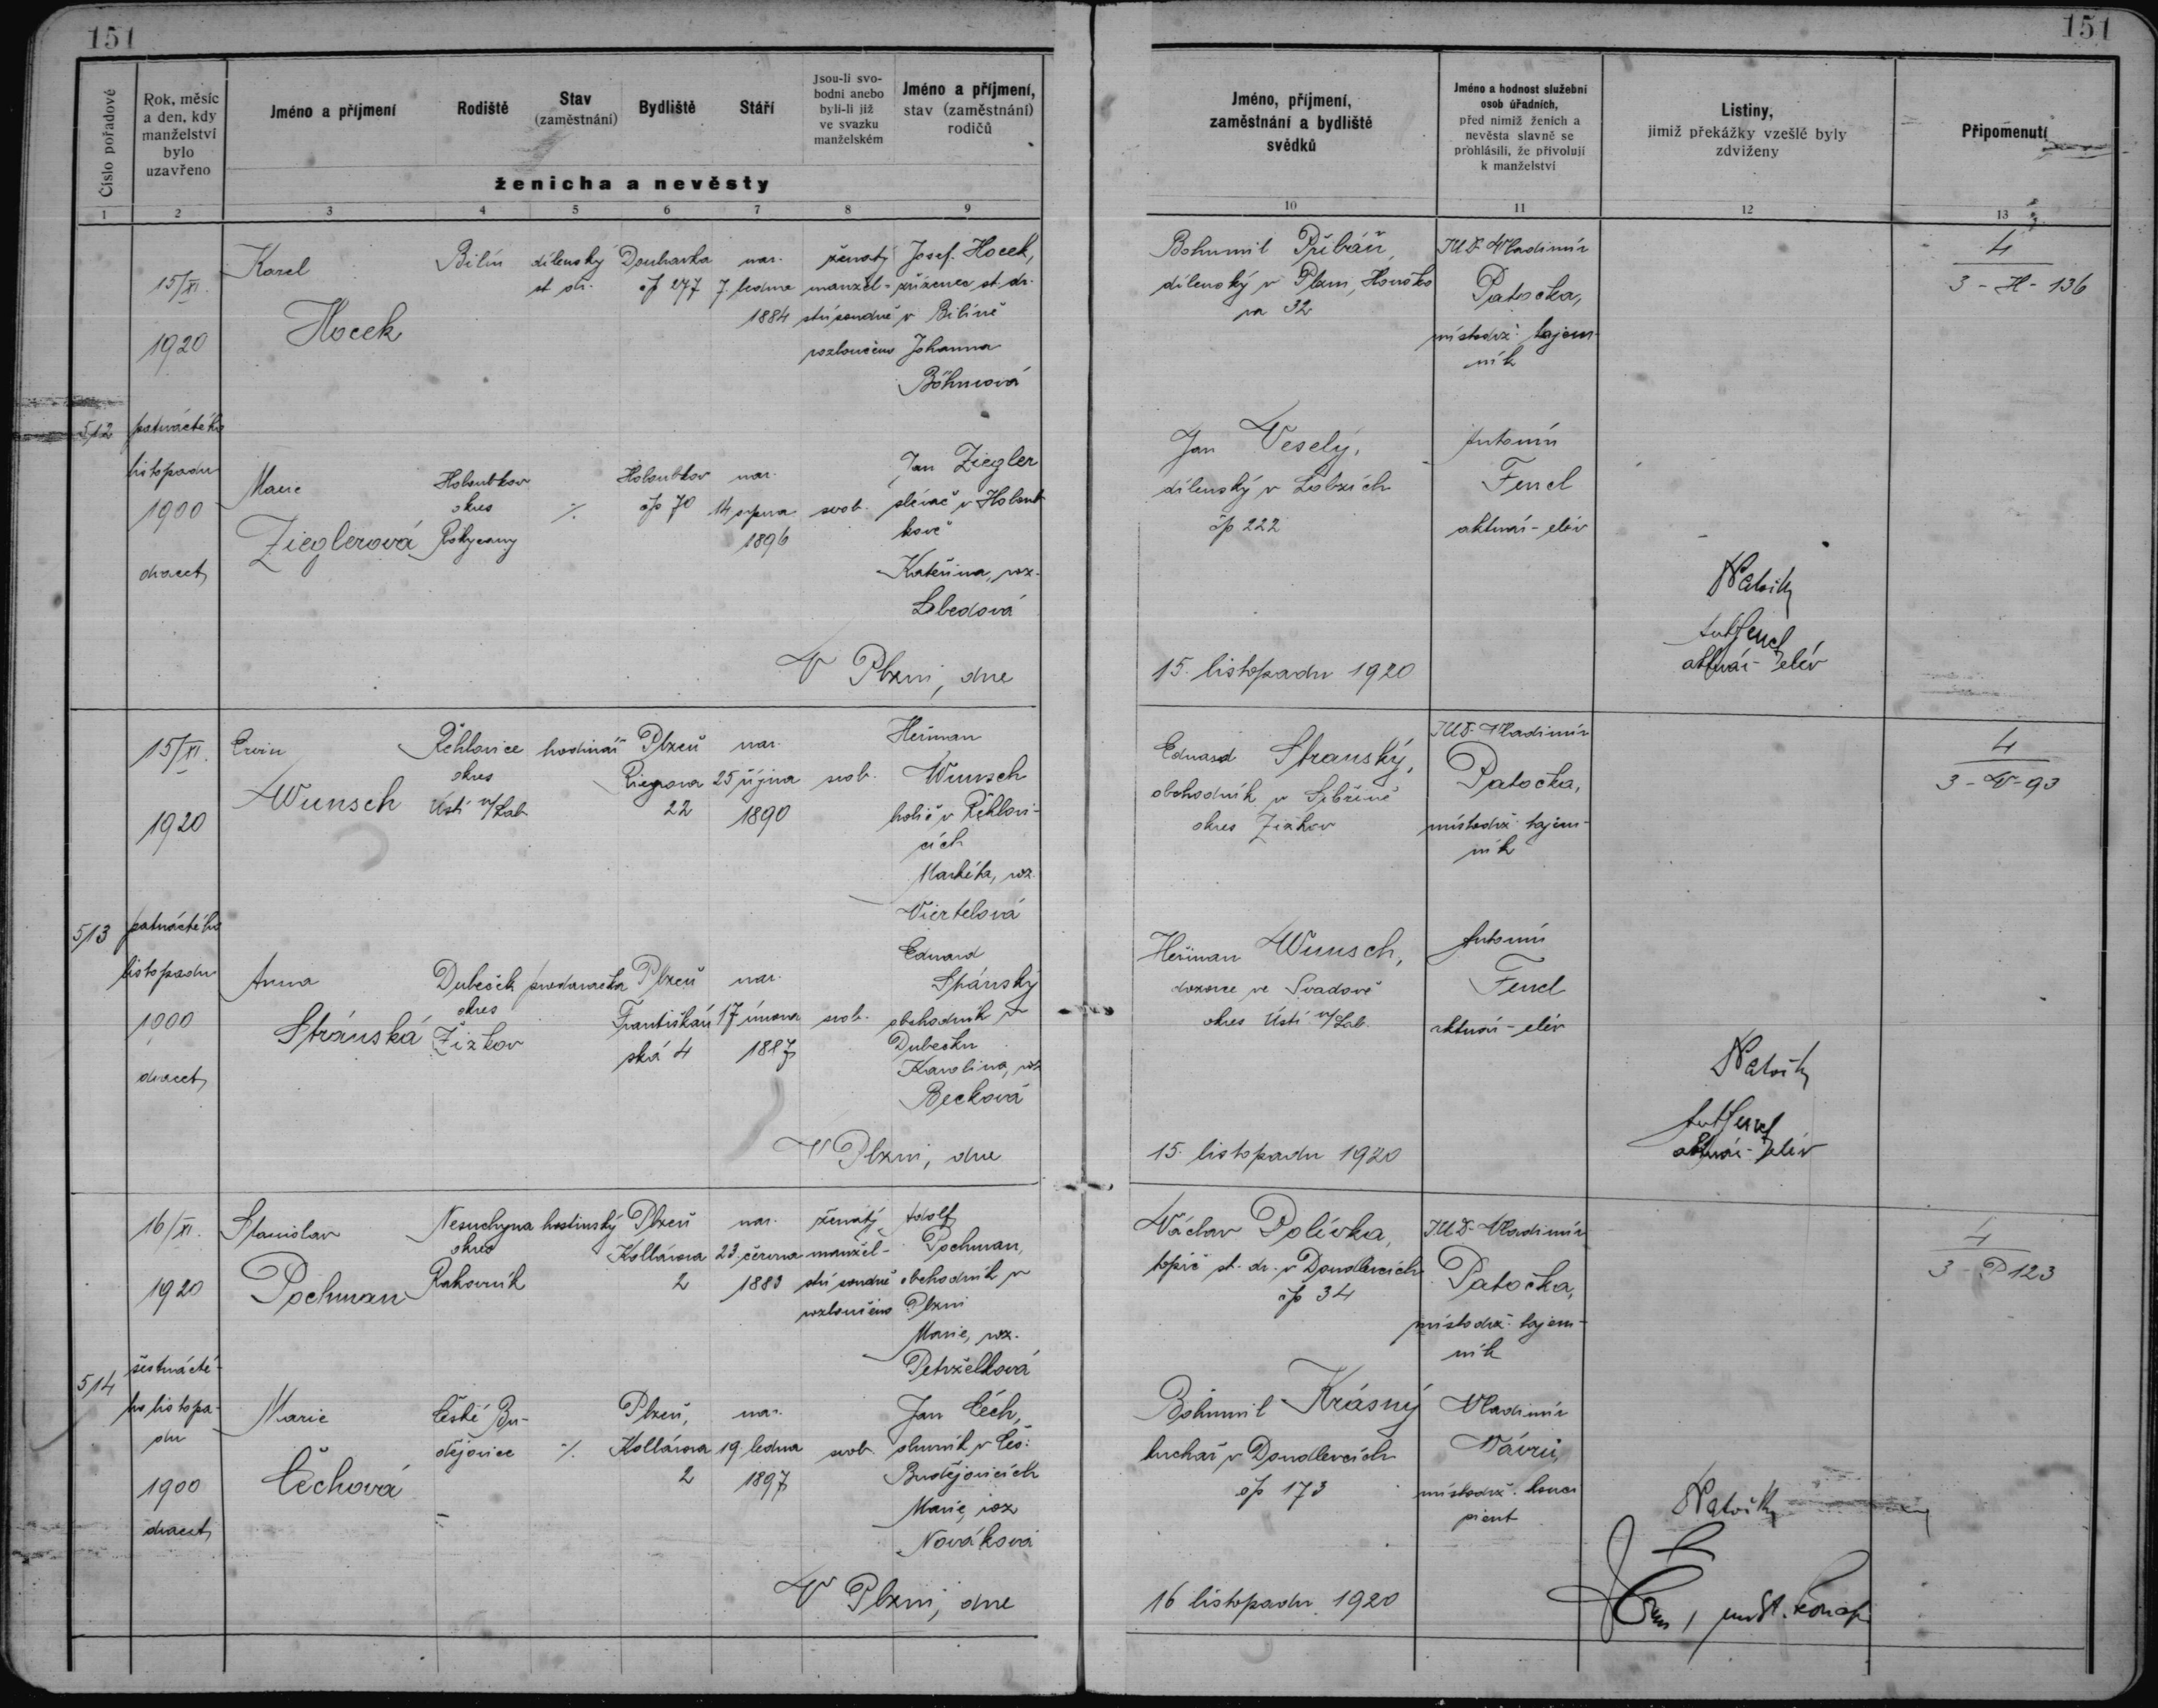 151
151
Číslo pořadové
Rok, měsíc
a den, kdy
manželství
bylo
uzavřeno
Jméno a příjmení
Rodiště
Stav
(zaměstnání)
Bydliště
Stáří
Jsou-li svo-
bodni anebo
byli-li již
ve svazku
manželském
Jméno a příjmení,
stav (zaměstnání)
rodičů
ženicha a nevěsty
Jméno, příjmení,
zaměstnání a bydliště
svědků
Jméno a hodnost služební
osob úřadních,
před nimiž ženich a
nevěsta slavně se
prohlásili, že přivolují
k manželství
Listiny,
jimiž překážky vzešlé byly
zdviženy
Připomenutí
1 2 3 4 5 6 7 8 9 10 11 12 13
512
15/XI.
1920
patnáctého
listopadu
1900
dvacet
Karel
Hocek
Bilín
dílenský
st. dr.
Doubravka
čp 277
nar.
7. ledna
1884
ženatý
manžel-
ství soudně
rozloučeno
Josef Hocek,
zřízenec st. dr.
v Bilíně
Johanna
Böhmová
Marie
Zieglerová
Holoubkov
okres
Rokycany
·/.
Holoubkov
čp 70
nar.
14 srpna
1896
svob.
Jan Ziegler
slévač v Holoub
kově
Kateřina, roz.
Lebedová
V Plzni, dne
Bohumil Přibáň,
dílenský v Plzni,
na 32
JUDr Vladimír
Patočka,
místodrž. tajem-
ník
Jan Veselý,
dílenský v Lobzích
čp 222
Antonín
Fencl
aktuár-elév
15. listopadu 1920
Patočka
Ant Fencl
aktuár-elév
4
3-H-136
513
15/XI.
1920
patnáctého
listopadu
1900
dvacet
Ervin
Wunsch
Řehlovice
okres
Ústí n/Lab
hodinář
Plzeň
Riegrova
22
nar.
25 října
1890
svob.
Heřman
Wunsch
holič v Řehlovi-
cích
Markéta, roz.
Viertelová
Anna
Stránská
Dubeček
okres
Žižkov
prodavačka
Plzeň
Františkán
ská 4
nar.
17 února
1887
svob.
Eduard
Stránský
obchodník v
Dubečku
Karolina, roz
Becková
V Plzni, dne
Eduard Stranský,
obchodník v Sibřině
okres Žižkov
JUDr Vladimír
Patočka,
místodrž. tajem-
ník
Heřman Wunsch,
dozorce ve Svádově
okres Ústí n/Lab.
Antonín
Fencl
aktuár-elév
15. listopadu 1920
Patočka
Ant Fencl
aktuár-elév
4
3-W-93
514
16/XI.
1920
šestnácté-
ho listopa-
du
1900
dvacet
Stanislav
Pochman
Nesuchyna
okres
Rakovník
hostinský
Plzeň
Kollárova
2
nar.
23. června
1883
ženatý,
manžel-
ství soudně
rozloučeno
Adolf
Pochman,
obchodník v
Plzni
Marie, roz.
Petrželková
Marie
Čechová
České Bu-
dějovice
·/.
Plzeň,
Kollárova
2
nar.
19 ledna
1897
svob.
Jan Čech,
v Čes.
Budějovicích
Marie, roz
Nováková
V Plzni, dne
Václav Polívka,
topič st. dr. v Doudlevcích
čp 34
JUDr Vladimír
Patočka,
místodrž. tajem-
ník
Bohumil Krásný
kuchař v Doudlevcích
čp 173
Vladimír
Vávrů
místodrž. konci
pient
16 listopadu 1920
Patočka
4
3-P 123